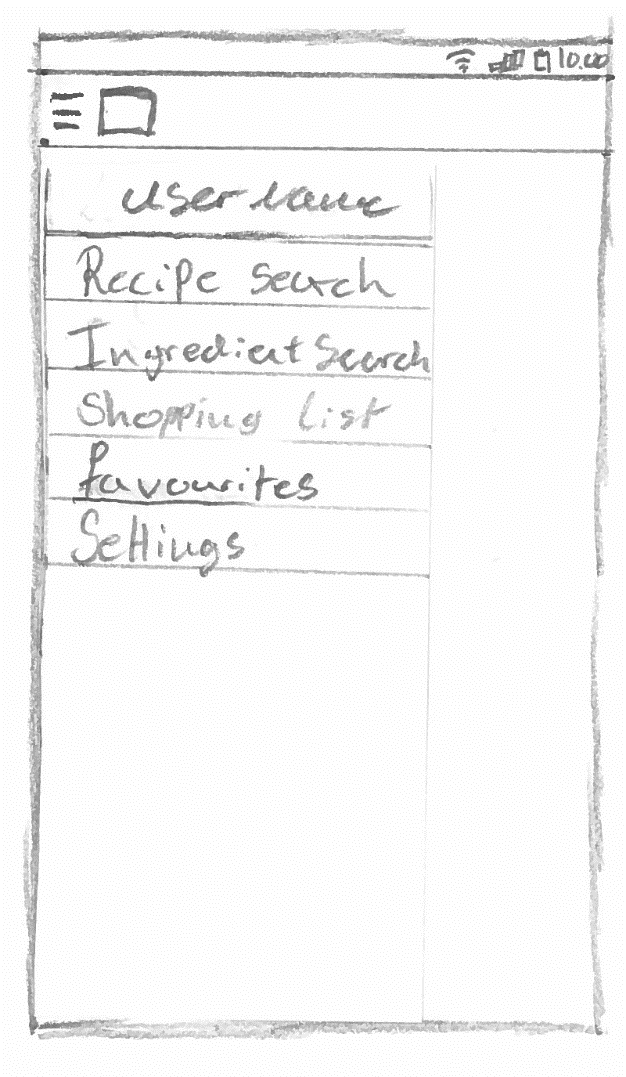 10.00
username
Recipe search
Ingredient Search
Shopping list
favourites
Settings